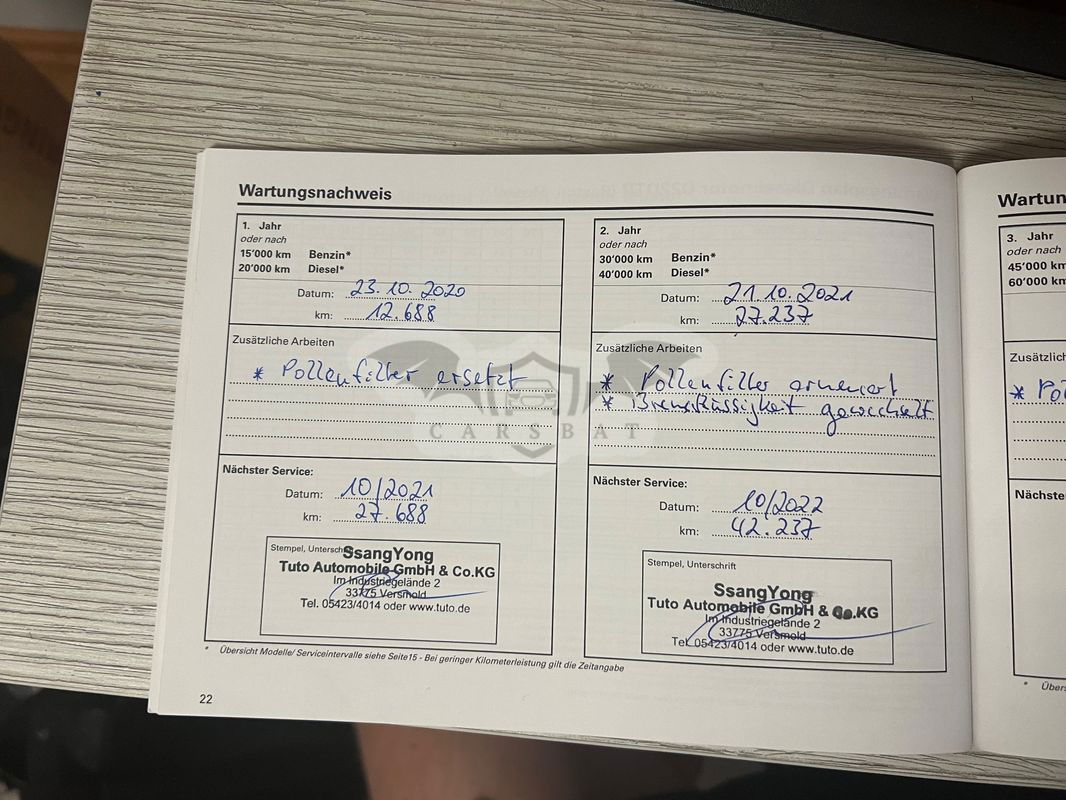 Wartungsnachweis
1. Jahr
oder nach
15'000 km Benzin*
20'000 km Diesel*
Datum: 23.10.2020
km: 12.688
Zusätzliche Arbeiten
* Pollenfilter ersetzt
Nächster Service:
Datum: 10/2021
km: 27.688
Stempel, Unterschrift
SsangYong
Tuto Automobile GmbH & Co.KG
Im Industriegelände 2
33775 Versmold
Tel. 05423/4014 oder www.tuto.de
2. Jahr
oder nach
30'000 km Benzin*
40'000 km Diesel*
Datum: 21.10.2021
km: 27.237
Zusätzliche Arbeiten
* Pollenfilter erneuert
* Bremsflüssigkeit gewechselt
Nächster Service:
Datum: 10/2022
km: 42.237
Stempel, Unterschrift
SsangYong
Tuto Automobile GmbH & Co.KG
Im Industriegelände 2
33775 Versmold
Tel. 05423/4014 oder www.tuto.de
* Übersicht Modelle/ Serviceintervalle siehe Seite15 - Bei geringer Kilometerleistung gilt die Zeitangabe
22
CARSBAT
Wartun
3. Jahr
oder nach
45'000 km
60'000 km
Zusätzlich
* Pol
Nächste
* Übers